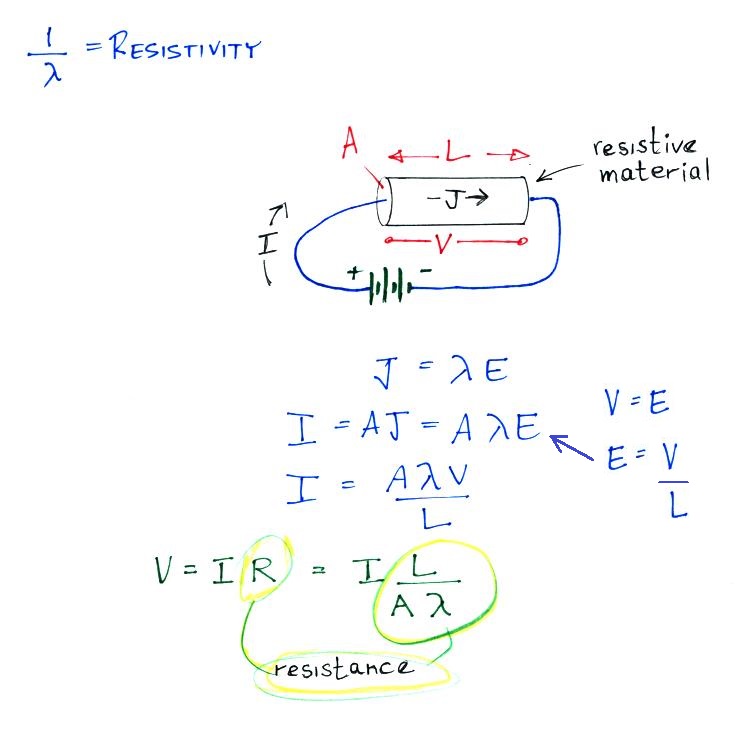 1/λ = RESISTIVITY
A
L
resistive
material
-J→
I
V
+ -
J = λE
I = AJ = AλE
V = E
E = V/L
I = AλV/L
V = IR = I L/Aλ
resistance